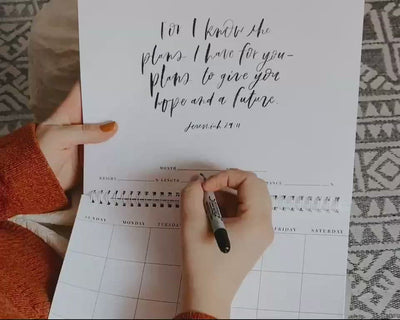 For I know the
plans I have for you—
plans to give you
hope and a future.
Jeremiah 29:11
MONTH
SUNDAY MONDAY TUESDAY FRIDAY SATURDAY